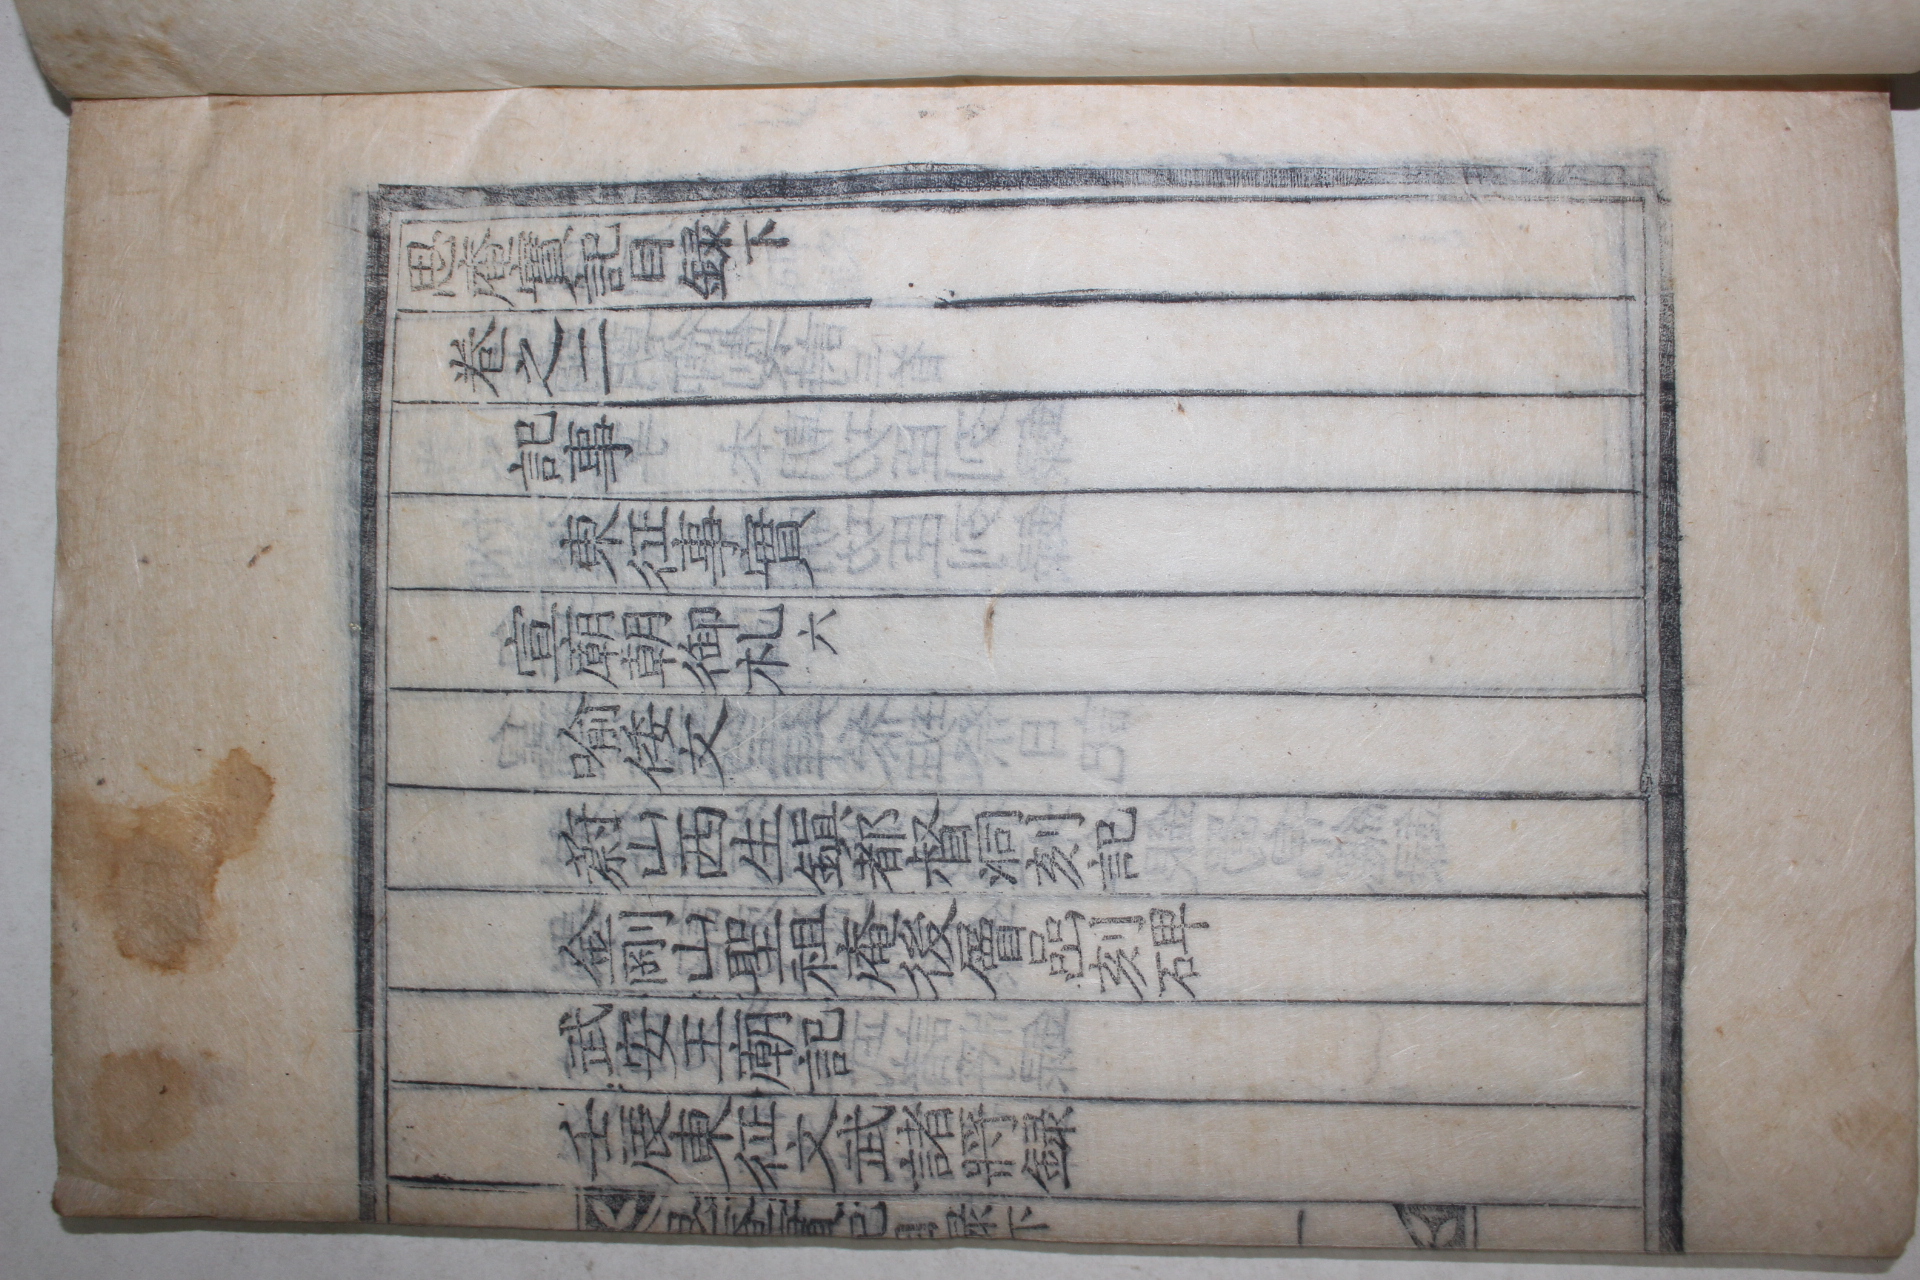 思庵實記目錄下
卷之二
記事
東征事實
宣廟朝御札六
喩倭文
蔚山西生鎭都督洞刻記
金剛山聖祖庵後層巖刻碑
武安王廟記
壬辰東征文武諸將錄
思庵實記目錄下 一